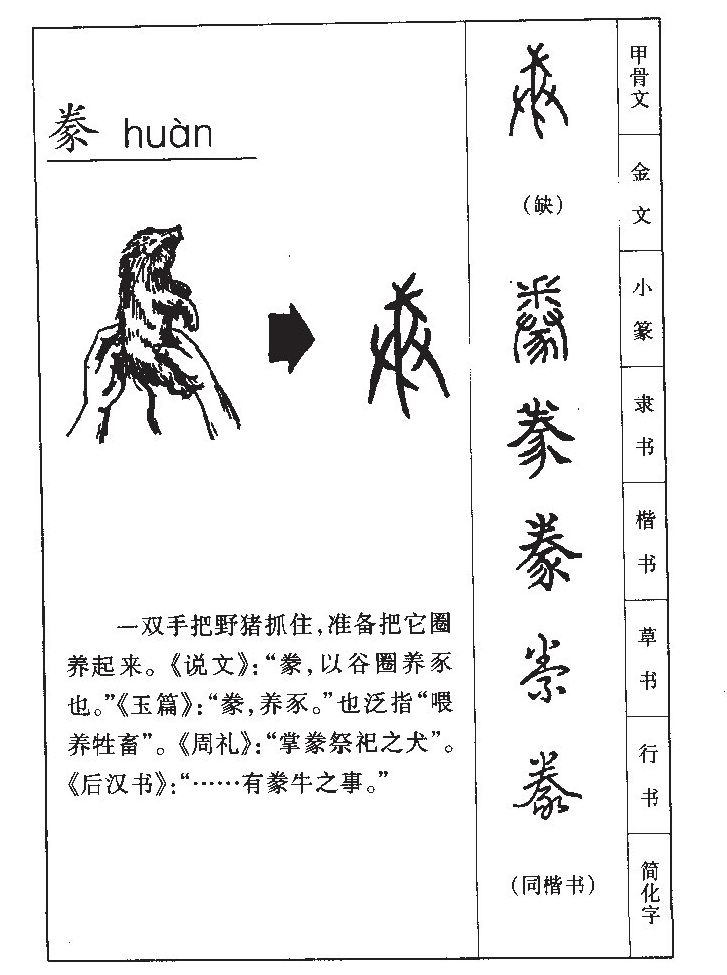 豢 huàn
一双手把野猪抓住，准备把它圈
养起来。《说文》：“豢，以谷圈养豕
也。”《玉篇》：“豢，养豕。”也泛指“喂
养牲畜”。《周礼》：“掌豢祭祀之犬”。
《后汉书》：“……有豢牛之事。”
甲骨文
金文
（缺）
小篆
隶书
豢
楷书
豢
草书
豢
行书
豢
简化字
（同楷书）